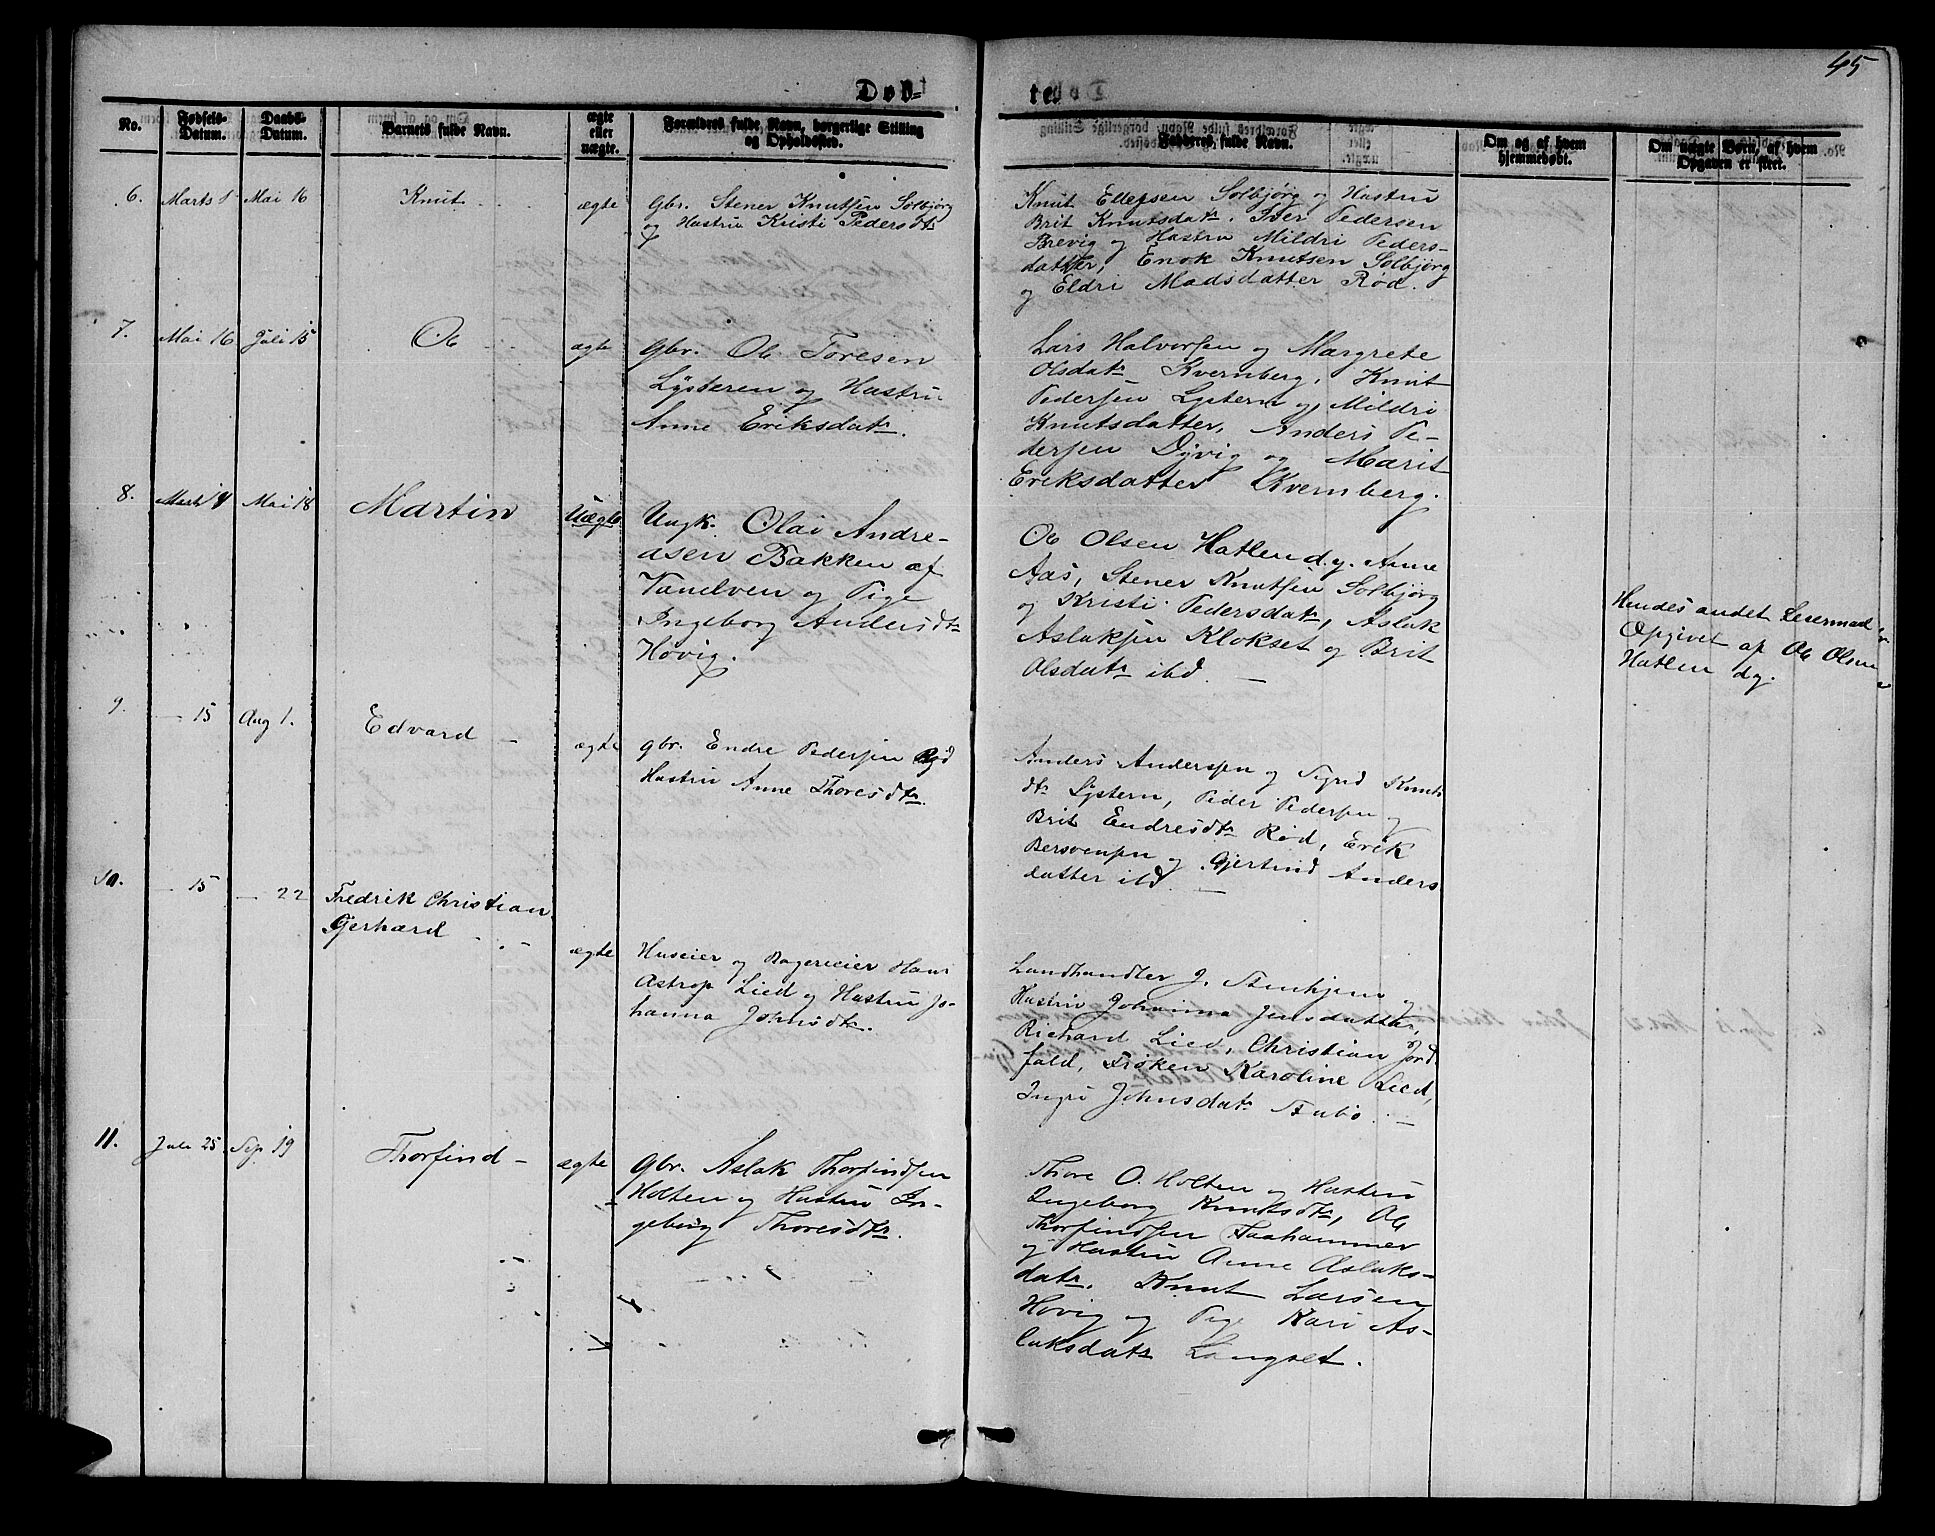 45
Døb-
te.
No.
Fødsels-
Datum.
Daabs-
Datum.
Barnets fulde Navn.
ægte
eller
uægte.
Forældres fulde Navn, borgerlige Stilling
og Opholdssted.
Fadderes fulde Navn.
Om og af hvem
hjemmedøbt.
Om uægte Børn, af hvem
Opgaven er skeet.
6. Marts Mai 16 Knut ægte
Gbr. Stener Knutsen Solbjørg
og Hustru Kristi Pedersdtr
Knut Ellefsen Solbjørg og Hustru
Brit Knutsdatr. Iver Pedersen
Brevig og Hustru Mildri Peders-
datter, Enok Knutsen Solbjørg
og Eldri Madsdatter Rød.
7. Mai 16 Juli 15 Ole ægte
Gbr. Ole Toresen
Lysteren og Hustru
Anne Eriksdatr.
Lars Halvorsen og Margrete
Olsdatr Kvernberg, Knut
Pedersen Lystern og Mildri
Knutsdatter, Anders Pe-
dersen Dyvig og Marit
Eriksdatter Kvernberg.
8. Mai 18 Martin Uægte
Ungk. Olai Andre-
asen Bakken af
Vanelven og Pige
Ingeborg Andersdtr
Hovig.
Ole Olsen Hatlen d.y. Anne
Aas, Stener Knutsen Solbjørg
og Kristi Pedersdatr, Aslak
Aslaksen Klokset og Brit
Olsdatr ibd.
Hendes andet Leiermaal
Opgivet af Ole Olsen
Hatlen dy.
9. — 15 Aug 1. Edvard — ægte
Gbr. Endre Pedersen
Hustru Anne Thoresdtr.
Anders Andersen og Sigrid Knuts
dtr Lystern, Peder Pedersen og
Brit Endresdtr Rød, Erik
Bersvensen og Gjertrud Anders
datter ibd.
10. — 15 — 22 Fredrik Christian
Gerhard — ægte
Huseier og Hans
Astrop Lied og Hustru Jo-
hanna Johnsdtr.
Landhandler J. og
Hustru Johanna Jensdatter,
Richard Lied, Christian Jord
fald, Frøken Karoline Lied,
Ingri Johnsdatr Stubø. —
11. Juli 25 Sep 19 Thorfind — ægte
Gbr. Aslak Thorfindsen
Holten og Hustru In-
geborg Thoresdtr.
Thore O. Holten og Hustru
Ingeborg Knutsdtr, Ole
Thorfindsen Taahammer
og Hustru Anne Aslaks-
datr. Knut Larsen
Hovig og Pige Kari As-
laksdatr Langset.